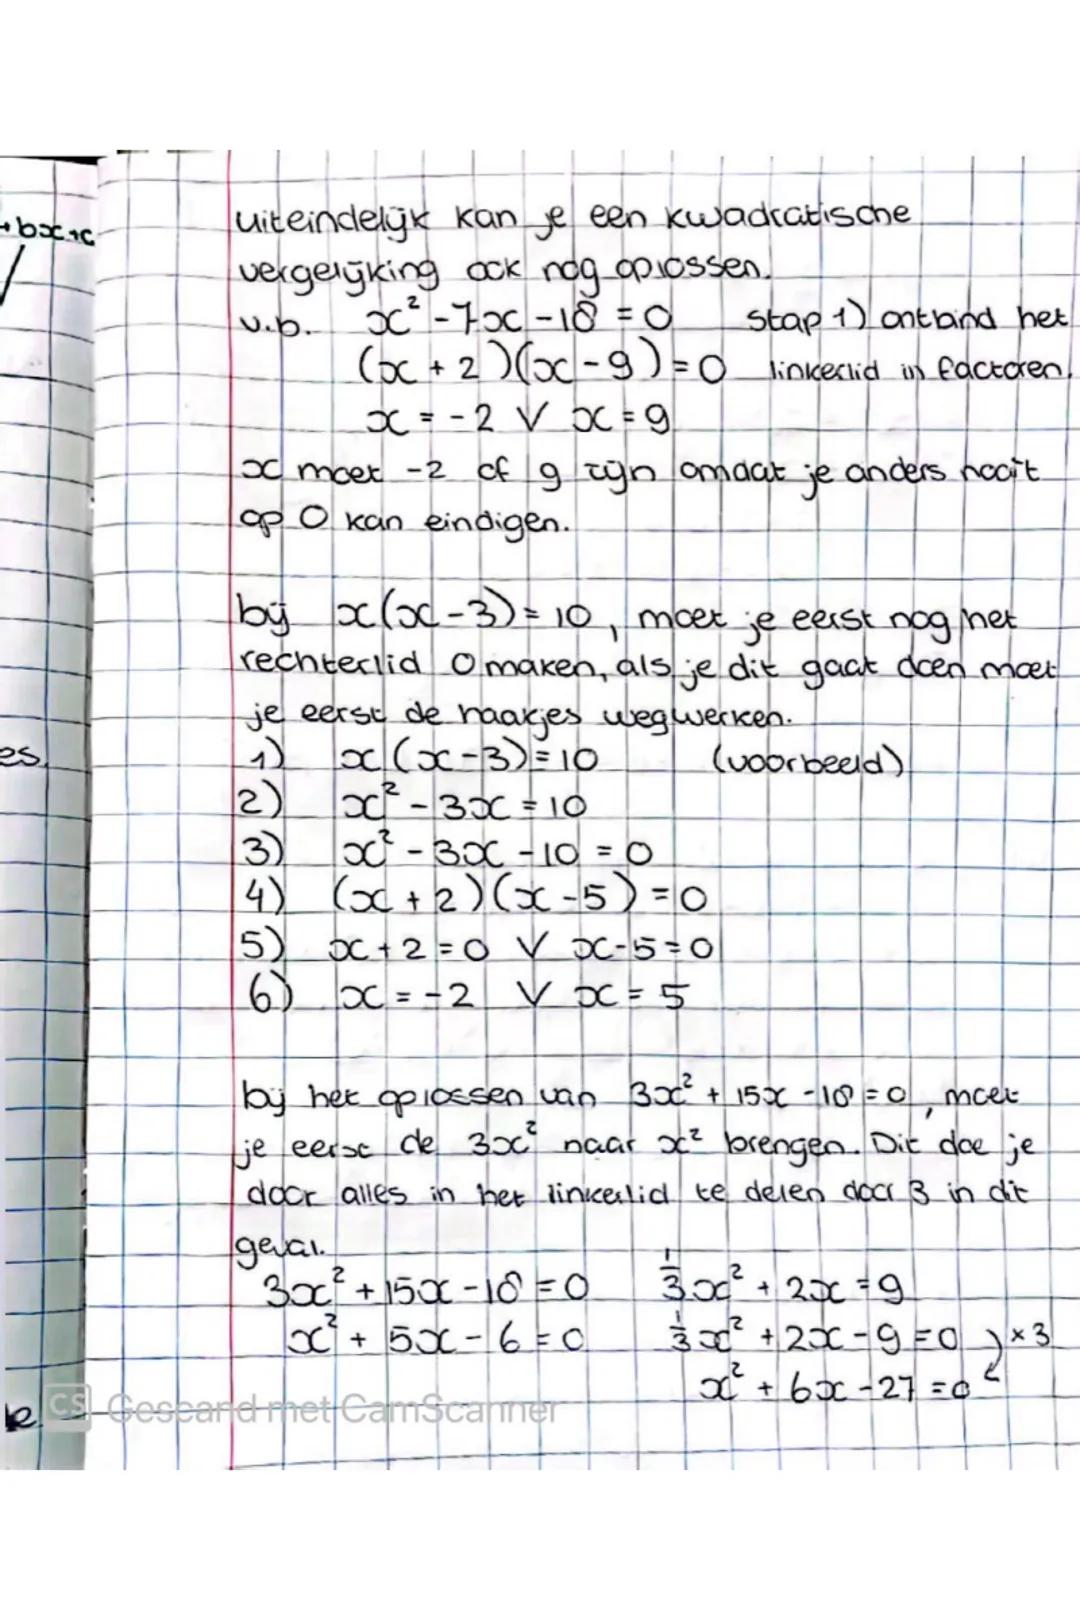 +bx+c
es
uiteindelijk kan je een kwadratische
vergelijking ook nog oplossen.
v.b. x² - 7x - 18 = 0 stap 1) ontbind het
(x + 2)(x - 9) = 0 linkerlid in factoren.
x = -2 V x = 9
x moet -2 of 9 zijn omdat je anders nooit
op 0 kan eindigen.
bij x(x - 3) = 10, moet je eerst nog het
rechterlid 0 maken, als je dit gaat doen moet
je eerst de haakjes wegwerken.
1) x(x - 3) = 10 (voorbeeld)
2) x² - 3x = 10
3) x² - 3x - 10 = 0
4) (x + 2)(x - 5) = 0
5) x + 2 = 0 V x - 5 = 0
6) x = -2 V x = 5
bij het oplossen van 3x² + 15x - 18 = 0, moet
je eerst de 3x² naar x² brengen. Dit doe je
door alles in het linkerlid te delen door 3 in dit
geval.
3x² + 15x - 18 = 0 1/3 x² + 2x = 9
x² + 5x - 6 = 0 1/3 x² + 2x - 9 = 0 ) x 3
x² + 6x - 27 = 0
CS Gescand met CamScanner